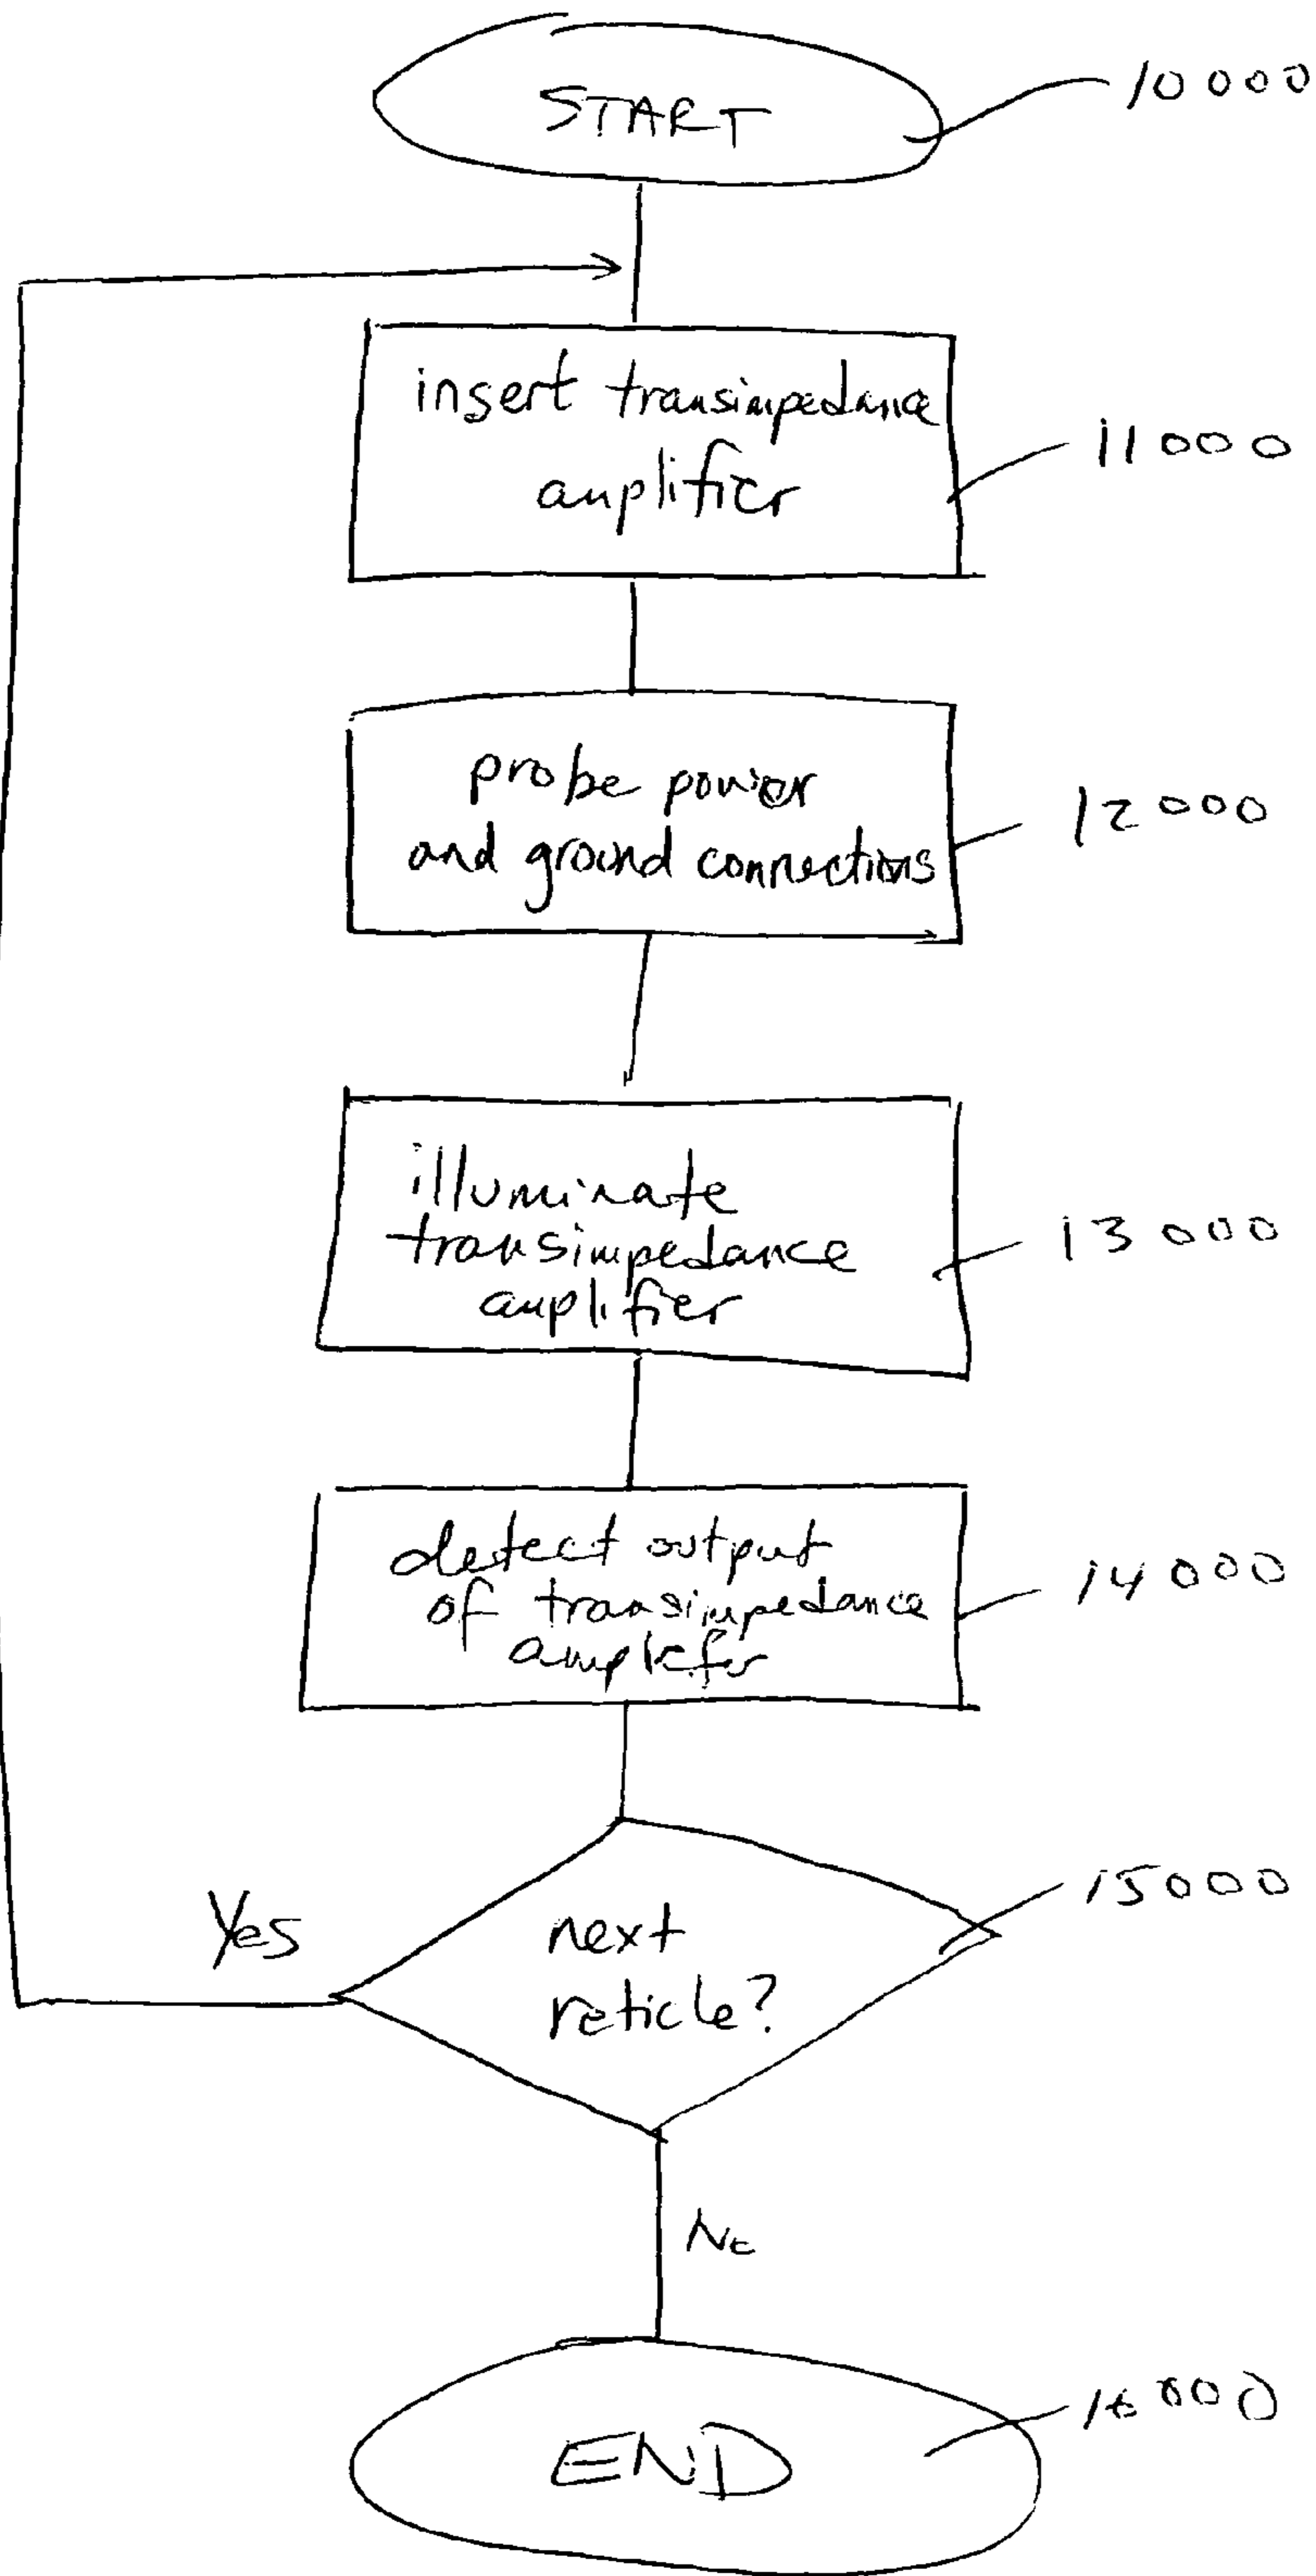 START
10000
insert transimpedance
amplifier
11000
probe power
and ground connections
12000
illuminate
transimpedance
amplifier
13000
detect output
of transimpedance
amplifier
14000
next
reticle?
15000
Yes
No
END
16000